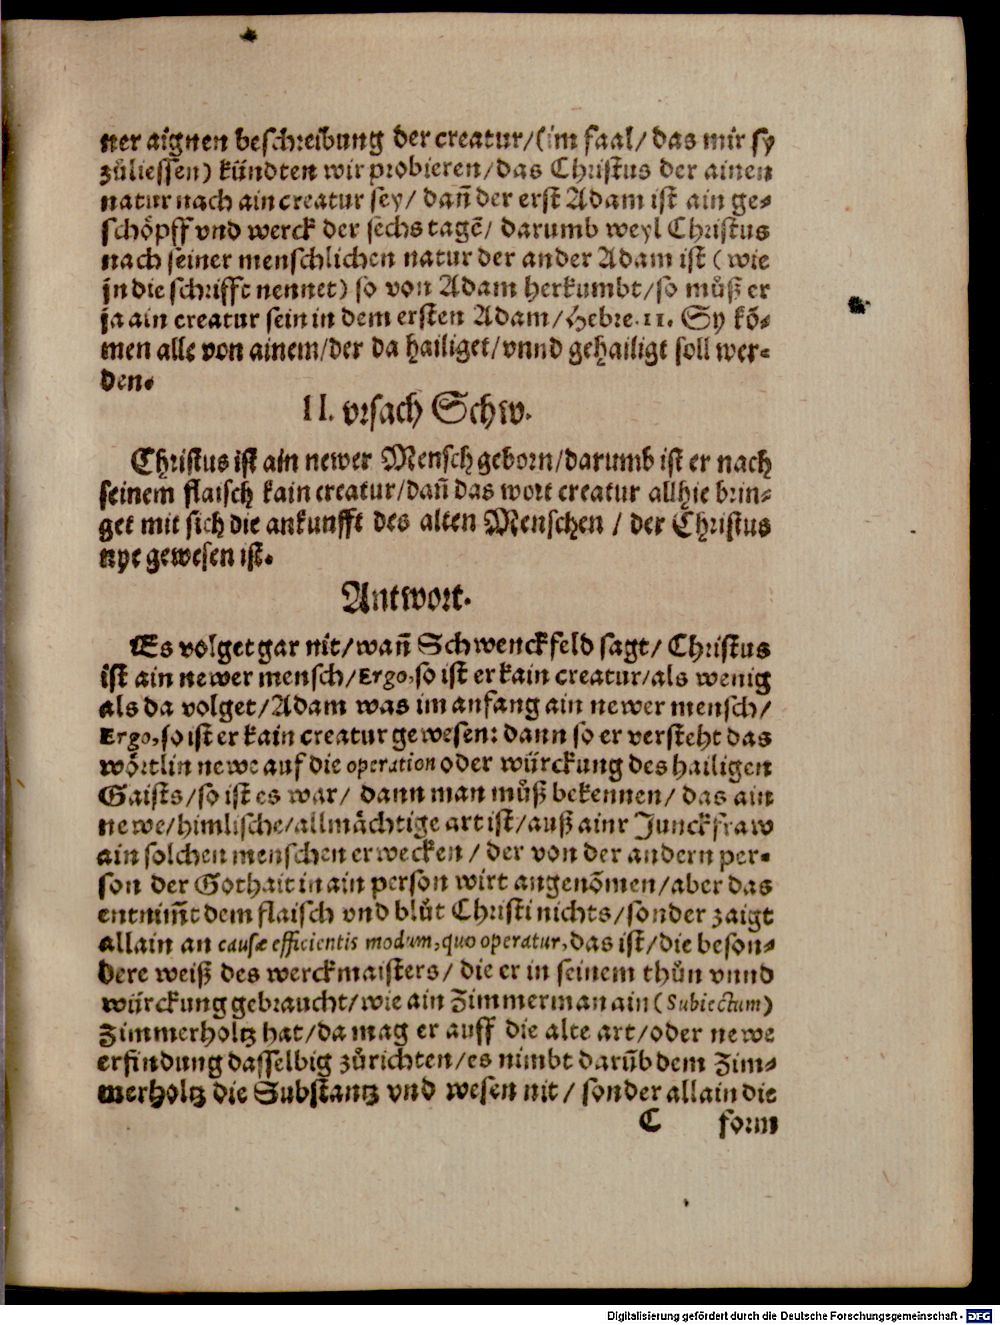 ner aignen beschreibung der creatur/(im faal/ das mir sy
zůliessen) kündten wir probieren/das Christus der ainen
natur nach ain creatur sey/ dañ der erst Adam ist ain ge-
schöpff vnd werck der sechs tagẽ/ darumb weyl Christus
nach seiner menschlichen natur der ander Adam ist ( wie
jn die schrifft nennet) so von Adam herkumbt/so můß er
ja ain creatur sein in dem ersten Adam/Hebre.11. Sy kõ-
men alle von ainem/der da hailiget/vnnd gehailigt soll wer-
den.
II. vrsach Schw.
Christus ist ain newer Mensch geborn/darumb ist er nach
seinem flaisch kain creatur/dañ das wort creatur allhie brin-
get mit sich die ankunfft des alten Menschen / der Christus
nye gewesen ist.
Antwort.
Es volget gar nit/wañ Schwenckfeld sagt/ Christus
ist ain newer mensch/Ergo,so ist er kain creatur/als wenig
als da volget/Adam was im anfang ain newer mensch/
Ergo,so ist er kain creatur gewesen: dann so er versteht das
wörtlin newe auf die operation oder würckung des hailigen
Gaists/so ist es war/ dann man můß bekennen/ das ain
newe/himlische/allmächtige art ist/auß ainr Junckfraw
ain solchen menschen erwecken / der von der andern per-
son der Gothait in ain person wirt angenõmen/aber das
entnim̃t dem flaisch vnd blůt Christi nichts/sonder zaigt
allain an causæ efficientis modum,quo operatur,das ist/die beson-
dere weiß des werckmaisters/ die er in seinem thůn vnnd
würckung gebraucht/wie ain Zimmerman ain (Subiectum)
Zimmerholtz hat/da mag er auff die alte art/oder newe
erfindung dasselbig zůrichten/es nimbt darũb dem Zim-
merholtz die Substantz vnd wesen nit/ sonder allain die
C form
Digitalisierung gefördert durch die Deutsche Forschungsgemeinschaft - DFG